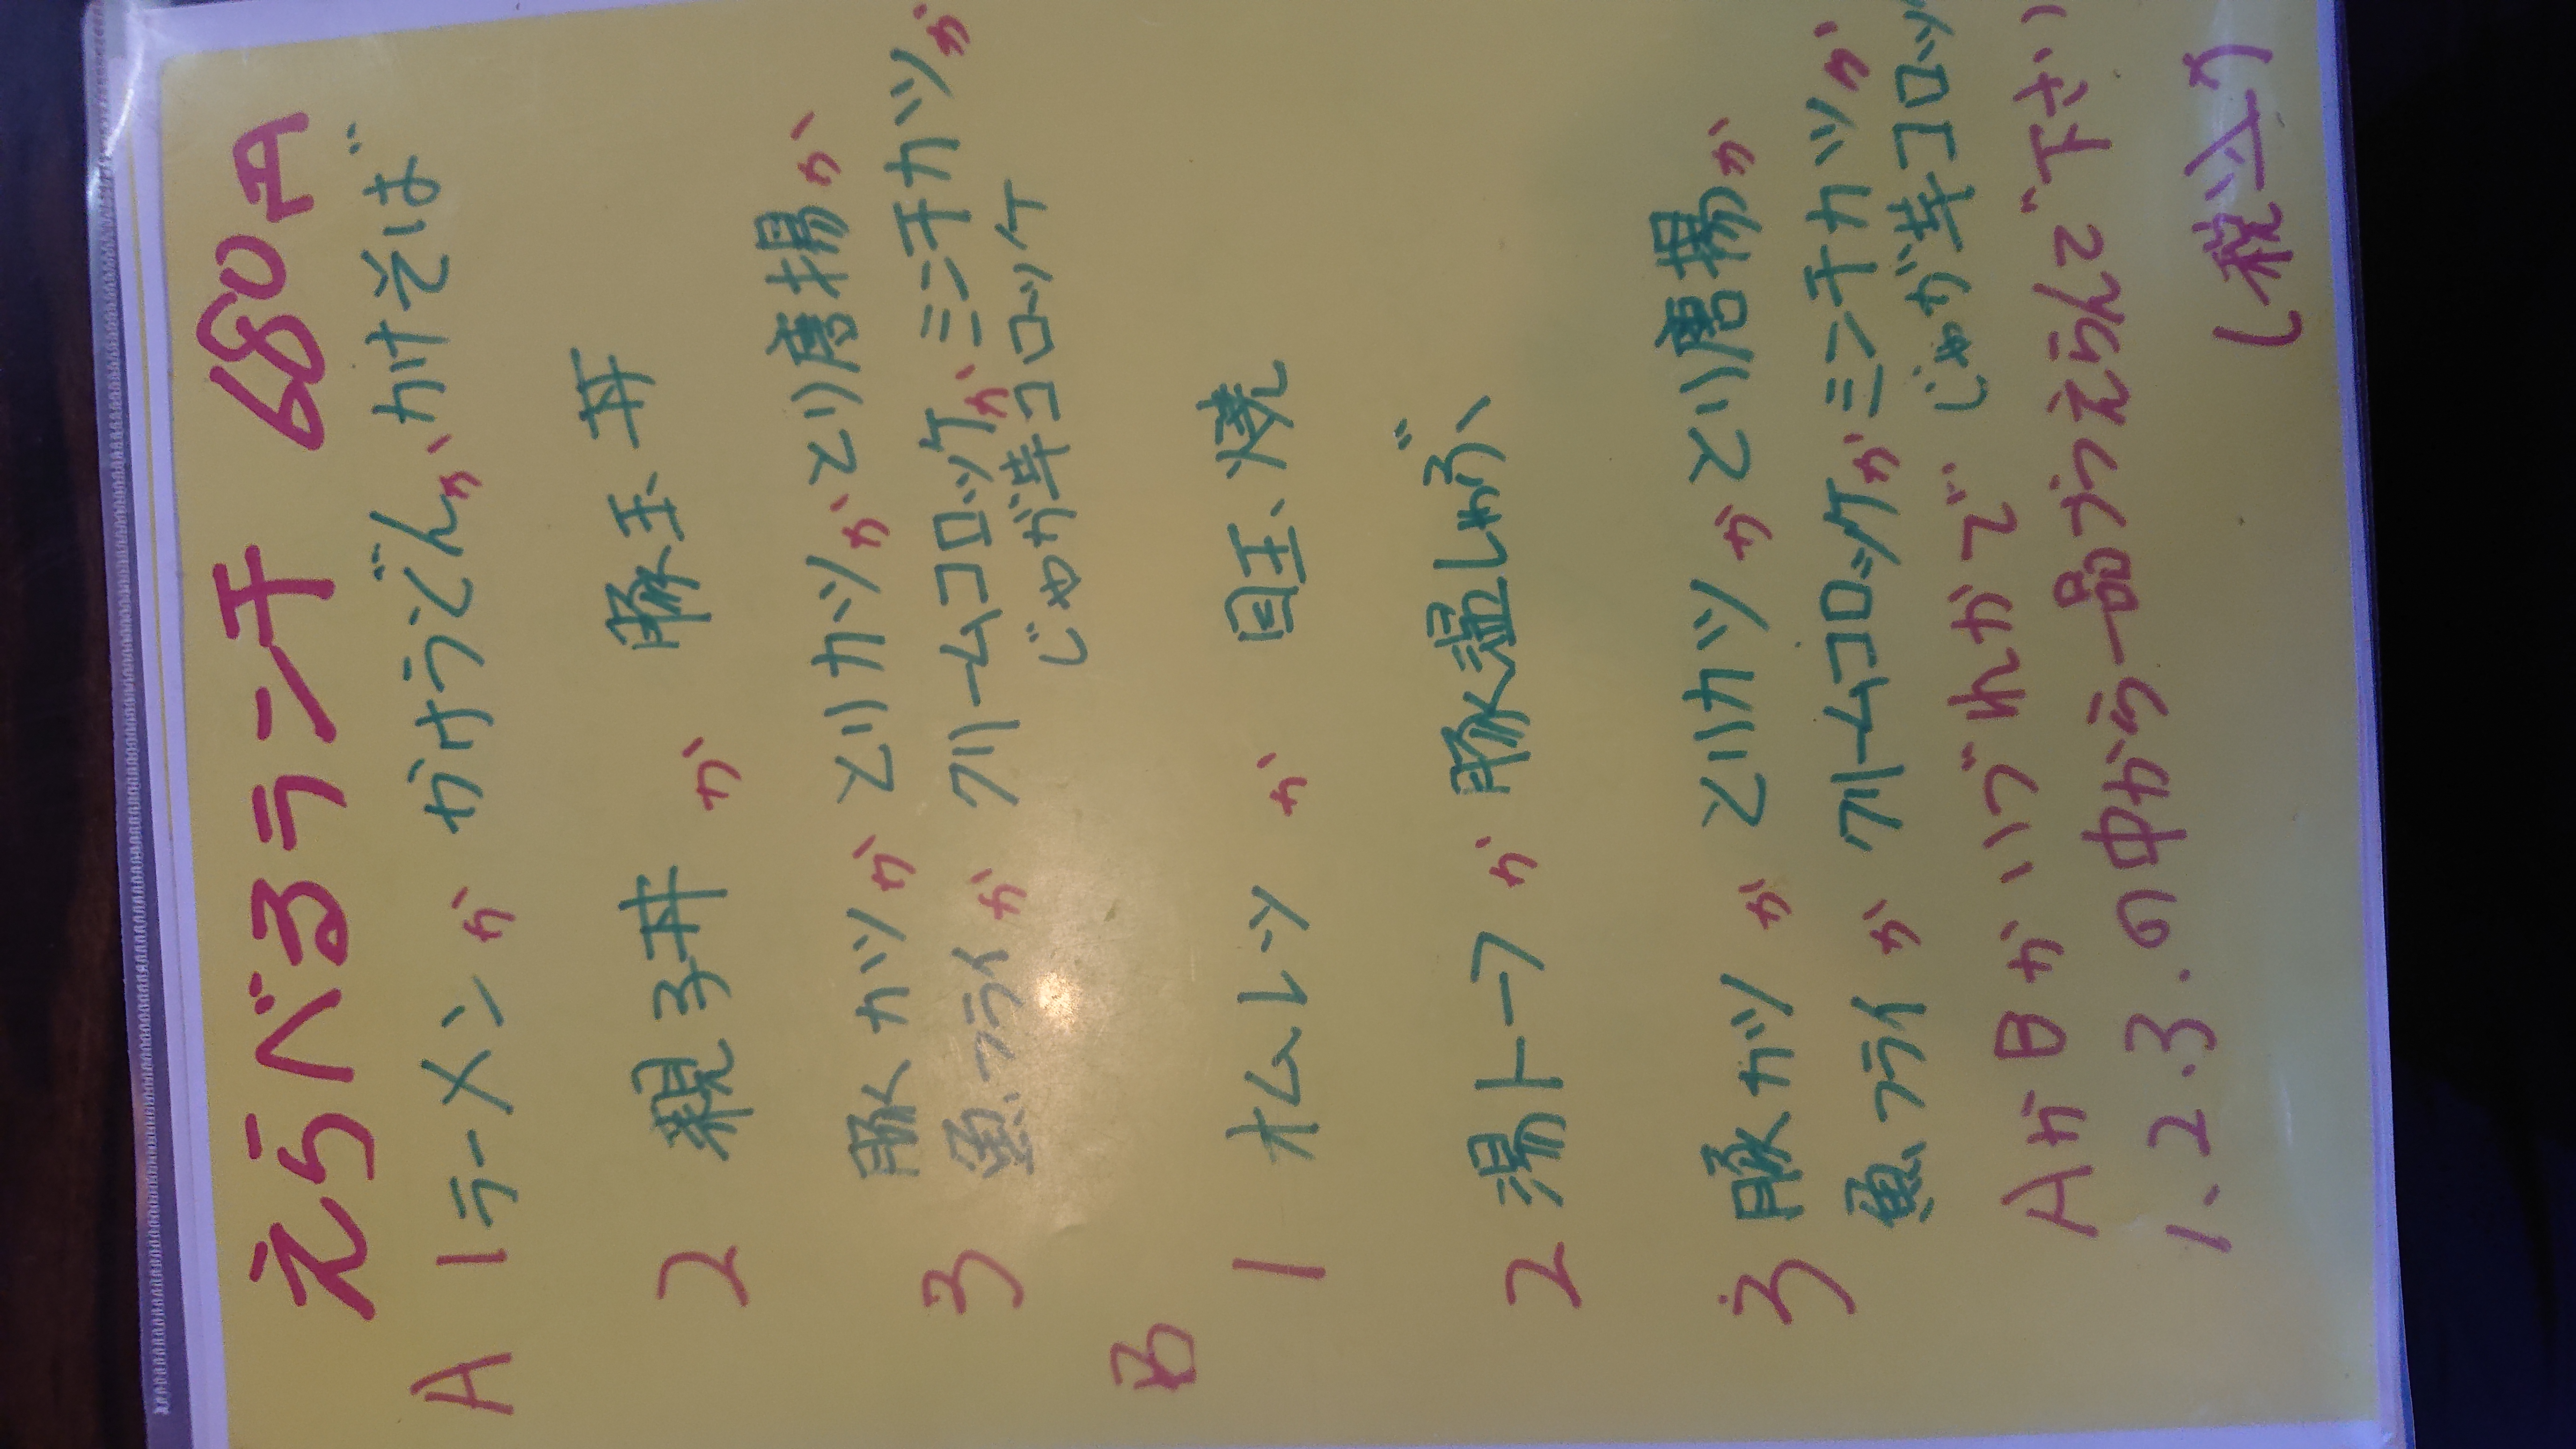 えらべるランチ 680円
A 1 ラーメンか かけうどんか かけそば
2 親子丼 か 豚玉丼
豚カツか とりカツか とり唐揚か
3 魚フライか クリームコロッケか ミンチカツか
じゃが芋コロッケ
B
1 オムレツ か 目玉焼
2 湯トーフ か 豚温しゃぶ
豚カツ か とりカツか とり唐揚か
3 魚フライ か クリームコロッケか ミンチカツか
じゃが芋コロッ
AかBか いづれかで
1.2.3.の中から一品づつえらんで下さい
(税込)